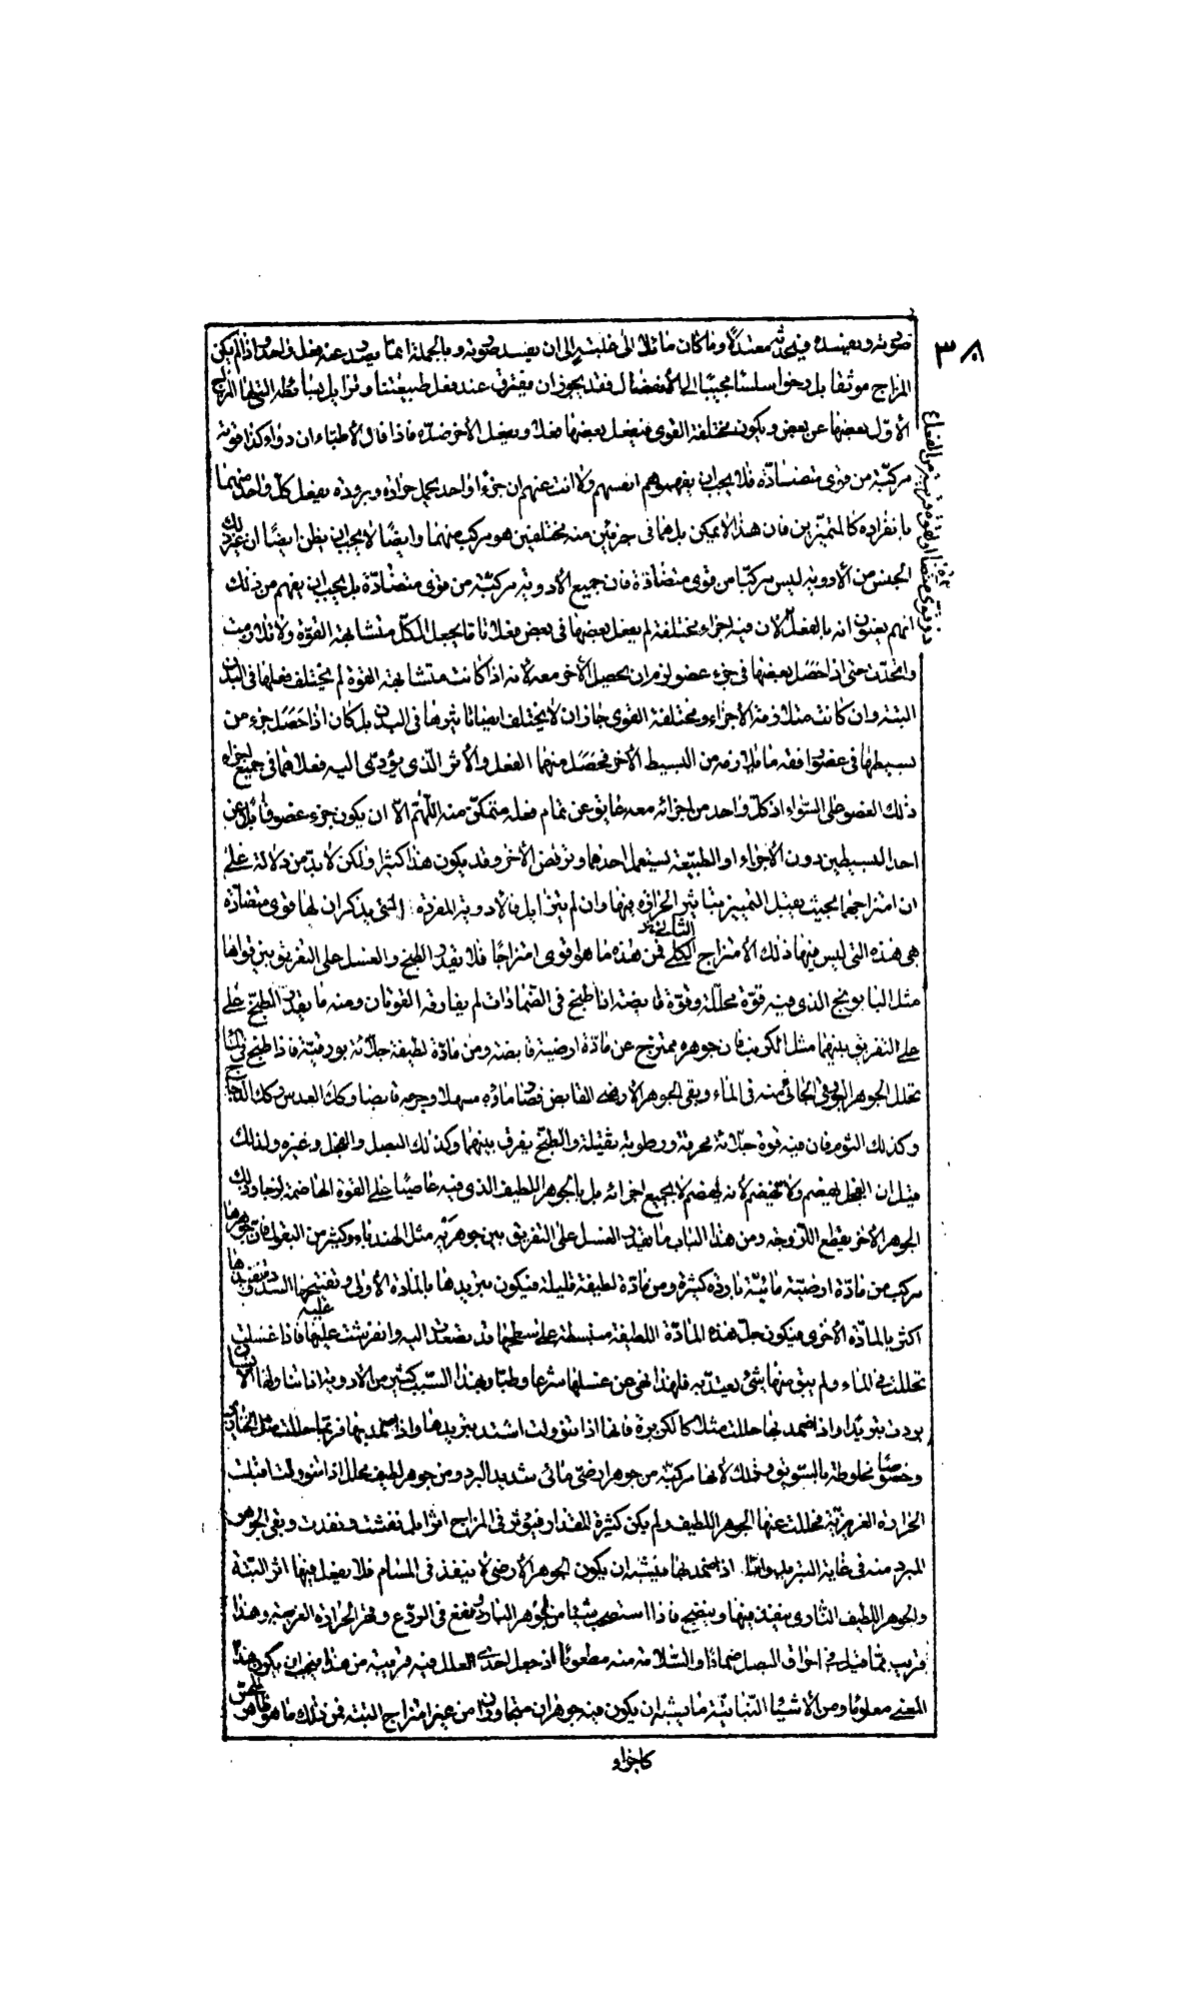 ٣٠٨
المزاج موثقا بل رخوا سلسا مجيبا الى الانفصال فقد يجوز ان يفترق عند فعل طبيعتنا
الأول بعضها عن بعض ويكون مختلفة القوى فيفعل بعضها فعلا ويفعل الآخر ضده فاذا قال الأطباء ان دواء كذا قوته
مركبة من قوى متضادة فلا يجب ان يفهموهم انفسهم ولا انت عنهم ان جزءا واحدا يحمل حرارة وبرودة يفعل كل واحد منهما
بانفراده كالمتميزين فان هذا لا يمكن بل هما فى جزئين منه مختلفين هو مركب منهما وايضا لا يجب ان يظن ايضا ان غير ذلك
الجنس من الأدوية ليس مركبا من قوى متضادة فان جميع الأدوية مركبة من قوى متضادة بل يجب ان يفهم من ذلك
انهم يعنون انه بالفعل لان فيه اجزاء مختلفة لم يفعل بعضها فى بعض فعلا تاما يجعل الكل متشابهة القوة ولا تلازمت
واتحدت حتى اذا حصل بعضها فى جزء عضو لزم ان يحصل الآخر معه لأنه اذا كانت متشابهة القوة لم يختلف فعلها فى البدن
البتة وان كانت متلازمة الأجزاء ومختلفة القوى جاز ان لا يختلف ايضا تاثيرها فى البدن بل كان اذا حصل جزء من
بسيطها فى عضو وافقه ما يلازمه من البسيط الآخر فحصل منهما الفعل والأثر الذى يؤدى اليه فعلاهما فى جميع اجزاء
ذلك العضو على السواء اذ كل واحد من اجزائه معه عايق عن تمام فعله متمكن منه اللهم الا ان يكون جزء عضو قابلا عن
احد البسيطين دون الأجزاء او الطبيعة يستعمل احدهما وترفض الآخر وقد يكون هذا كثيرا ولكن لا بد من دلالة على
ان امتزاجهما بحيث يقبل التمييز بتاثير الحرارة فيها وان لم يتزايل فالأدوية المفردة التى يذكر ان لها قوى متضادة
هى هذه التى ليس فيها ذلك الامتزاج الكلى فمن هذه ما هو قوى امتزاجا فلا يقدر الطبخ والغسل على التفريق بين قواها
مثل البابونج الذى فيه قوة محللة وقوة قابضة اذا طبخ فى الضمادات لم يفارقه القوتان ومنه ما يقدر الطبخ على
على التفريق بينهما مثل الكرنب فان جوهره ممتزج عن مادة ارضية قابضة ومن مادة لطيفة جلائة بورقية فاذا طبخ فى الماء
تحلل الجوهر البورقى الجالى منه فى الماء وبقى الجوهر الأرضى القابض فصار ماؤه مسهلا وجرمه قابضا وكك العدس وكك الدجاج
وكذلك الثوم فان فيه قوة جلائة محرقة ورطوبة ثقيلة والطبخ يفرق بينهما وكذلك البصل والفجل وغيره ولذلك
قيل ان الفجل يهضم ولا ينهضم لأنه يهضم لا بجميع اجزائه بل بالجوهر اللطيف الذى فيه
الجوهر الآخر يقطع اللزوجة ومن هذا الباب ما يقدر الغسل على التفريق بين جوهريه مثل الهندباء وكثير من البقول فان جوهرها
مركب من مادة ارضية مائية باردة كثيرة ومن مادة لطيفة قليلة فيكون تبريدها بالمادة الأولى وتفتيحها السدد وتنفيذها
اكثر بالمادة الأخرى فيكون جل هذه المادة اللطيفة منبسطة على سطحها قد تصعدت اليه وانفرشت عليها فاذا غسلت
تحللت فى الماء ولم يبق منها شئ يعتد به فلهذا نهى عن غسلها شرعا وطبا ولهذا السبب كثير من الأدوية اذا تناولها الانسان
بردت تبريدا واذا ضمد بها حللت مثلا كالكزبرة فانها اذا تنوولت اشتد تبريدها واذا ضمد بها فربما حللت مثل الخنازير
وخصوصا مخلوطة بالسويق وذلك لانها مركبة من جوهر ارضى مائى شديد البرد ومن جوهر لطيف محلل فاذا تنوولت اقبلت
الحرارة الغريزية فحللت عنها الجوهر اللطيف ولم يكن كثيرة المقدار فيؤثر فى المزاج اثرا بل نفشت ونفدت وبقى الجوهر
المبرد منه فى غاية التبريد واما اذا ضمد بها فيشبه ان يكون الجوهر الأرضى لا ينفذ فى المسام فلا يفعل فيها اثر البتة
والجوهر اللطيف النارى ينفذ فيها وينضج فاذا استصحب شيئا من الجوهر البارد نفع فى الردع وقهر الحرارة الغريبة وهذا
قريب مما قيل فى احراق البصل ضمادا والسلامة منه مطعوما اذ جعل احدى العلل فيه قريبة من هذا فيجب ان يكون هذا
المعنى معلوما ومن الأشياء النباتية ما يشبه ان يكون فيه جوهران متجاوران من غير امتزاج البتة فمن ذلك ما هو ظاهر للحس
كاجزاء